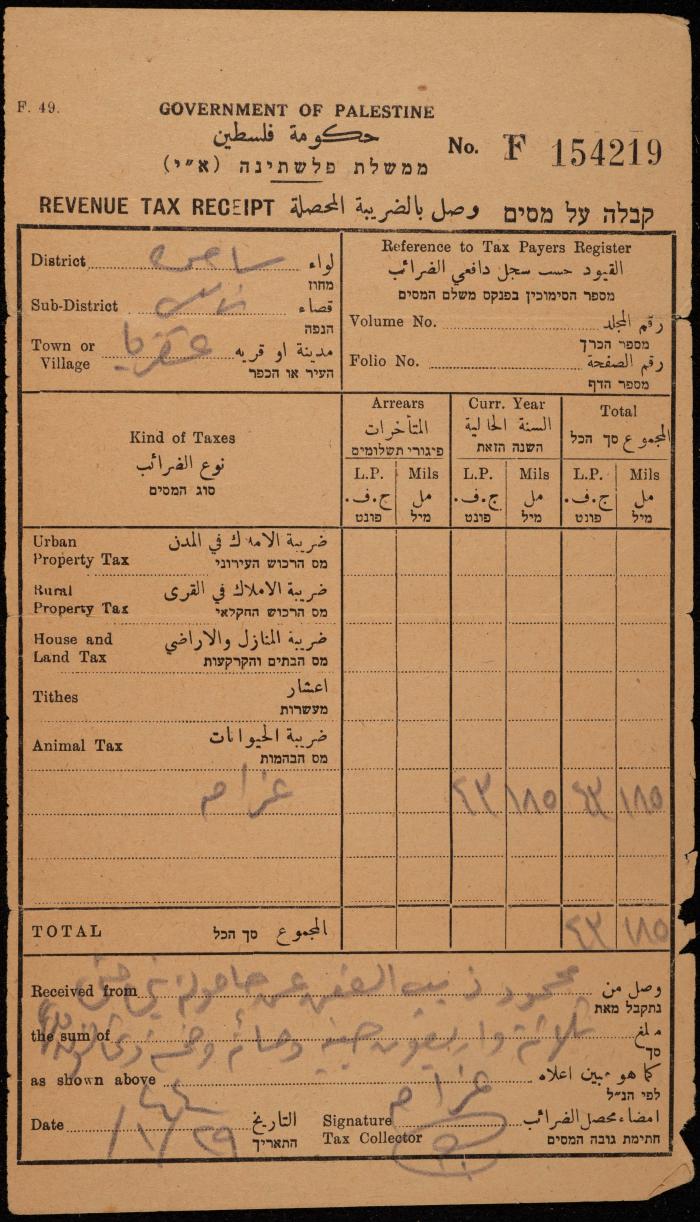 F. 49.
GOVERNMENT OF PALESTINE
حكومة فلسطين
ממשלת פלשתינה (א״י)
No. F 154219
REVENUE TAX RECEIPT وصل بالضريبة المحصلة קבלה על מסים
District لواء
מחוז
Sub-District قضاء
הנפה
Town or Village عقربا مدينة او قريه
העיר או הכפר
Reference to Tax Payers Register
القيود حسب سجل دافعي الضرائب
מספר הסימוכין בפנקס משלם המסים
Volume No. رقم المجلد
מספר הכרך
Folio No. رقم الصفحة
מספר הדף
Kind of Taxes
نوع الضرائب
סוג המסים
Arrears
المتأخرات
פיגורי תשלומים
Curr. Year
السنة الحالية
השנה הזאת
Total
المجموع סך הכל
L.P. Mils L.P. Mils L.P. Mils
ج.ف. مل ج.ف. مل ج.ف. مل
פונט מיל פונט מיל פונט מיל
Urban Property Tax ضريبة الاملاك في المدن
מס הרכוש העירוני
Rural Property Tax ضريبة الاملاك في القرى
מס הרכוש החקלאי
House and Land Tax ضريبة المنازل والاراضي
מס הבתים והקרקעות
Tithes اعشار
מעשרות
Animal Tax ضريبة الحيوانات
מס הבהמות
غرام ٤٣ ١٨٥ ٤٣ ١٨٥
TOTAL סך הכל المجموع ٤٣ ١٨٥
Received from محمود ذيب عن حامولة بني وصل من
נתקבל מאת
the sum of ثلاثة واربعون جنيه ومائة وخمسة مبلغ
סך
as shown above كما هو مبين اعلاه
לפי הנ״ל
غرام
Date ٢٩/١/٤٤ التاريخ
התאריך
Signature Tax Collector امضاء محصل الضرائب
חתימת גובה המסים